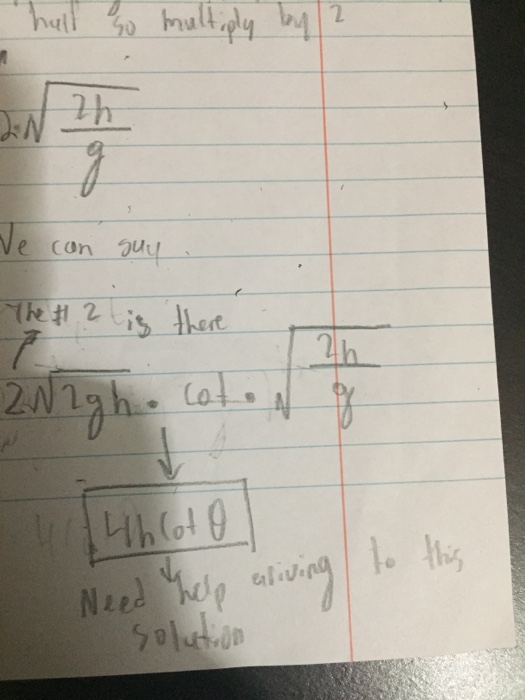 half so multiply by 2
2·√(2h/g)
We can say
The # 2 is there
2√2gh · cot · √(2h/g)
4h Cot θ
Need help ariving to this
solution